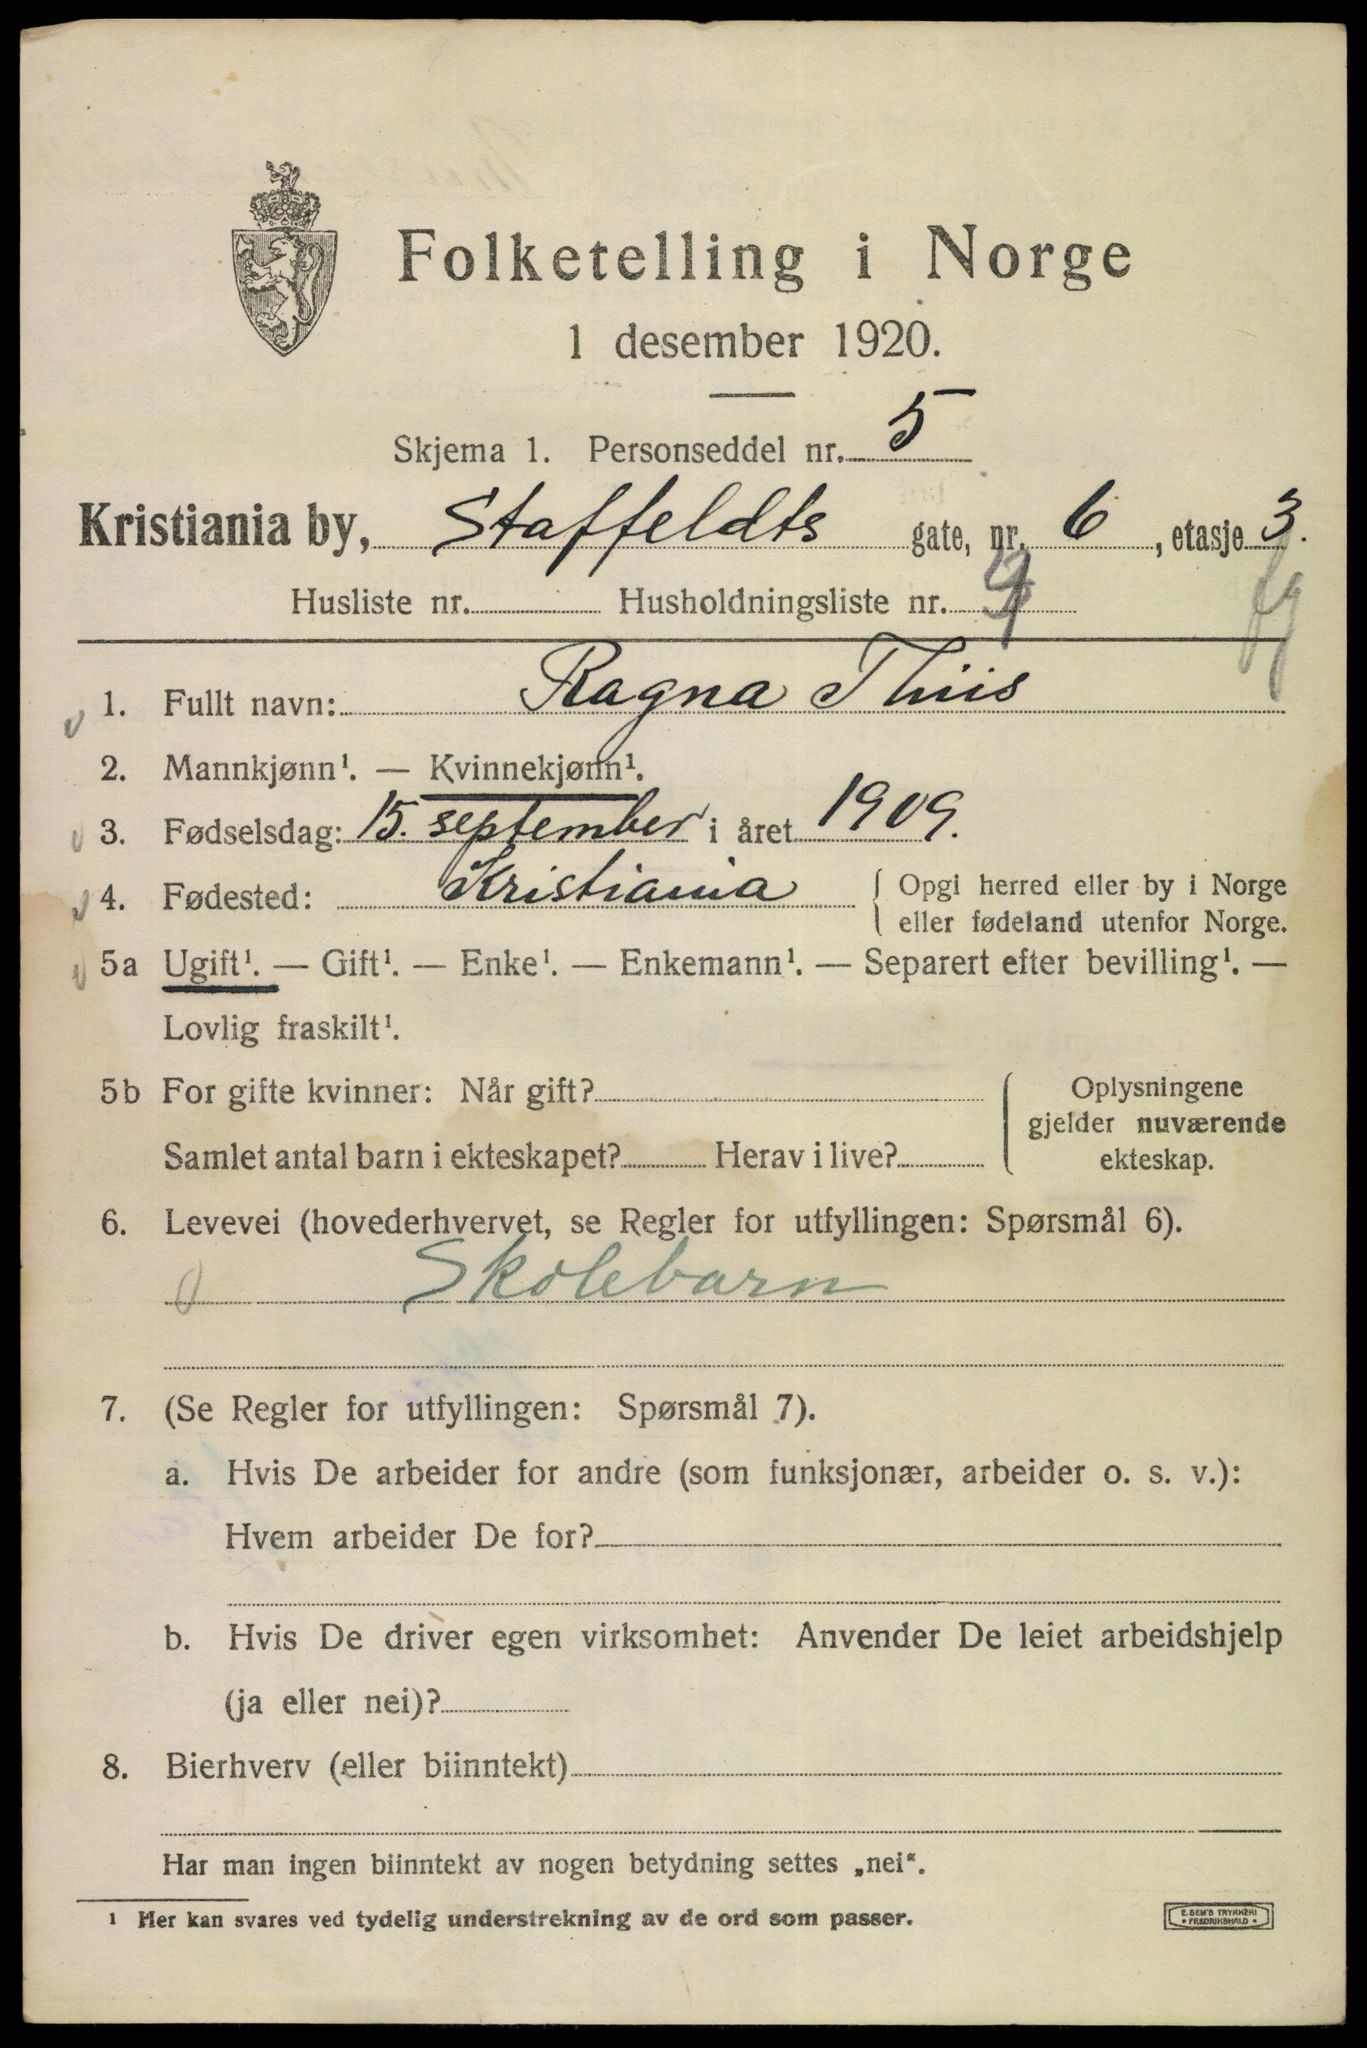 Folketelling i Norge
1 desember 1920.
Skjema 1. Personseddel nr. 5
Kristiania by, Staffeldts gate, nr. 6, etasje 3.
Husliste nr. Husholdningsliste nr.
1. Fullt navn: Ragna Thiis
2. Mannkjønn¹. — Kvinnekjønn¹.
3. Fødselsdag: 15. september i året 1909.
4. Fødested: Kristiania { Opgi herred eller by i Norge
eller fødeland utenfor Norge.
5a Ugift¹. — Gift¹. — Enke¹. — Enkemann¹. — Separert efter bevilling¹. —
Lovlig fraskilt¹.
5b For gifte kvinner: Når gift?
Samlet antal barn i ekteskapet? Herav i live?
Oplysningene
gjelder nuværende
ekteskap.
6. Levevei (hovederhvervet, se Regler for utfyllingen: Spørsmål 6).
Skolebarn
7. (Se Regler for utfyllingen: Spørsmål 7).
a. Hvis De arbeider for andre (som funksjonær, arbeider o. s. v.):
Hvem arbeider De for?
b. Hvis De driver egen virksomhet: Anvender De leiet arbeidshjelp
(ja eller nei)?
8. Bierhverv (eller biinntekt)
Har man ingen biinntekt av nogen betydning settes „nei“.
¹ Her kan svares ved tydelig understrekning av de ord som passer.
E. SEM'S TRYKKERI
• FREDRIKSHALD •